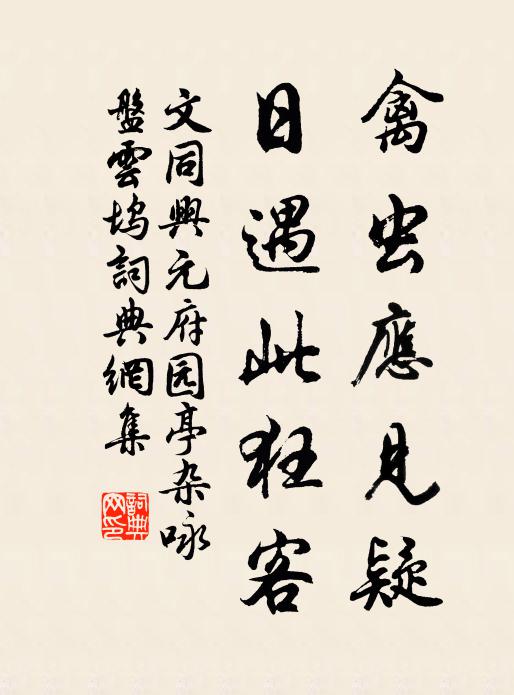 禽虫應見疑
日遇此狂客
文同興元府园亭杂咏
盤雲坞詞典網集
詞典網印